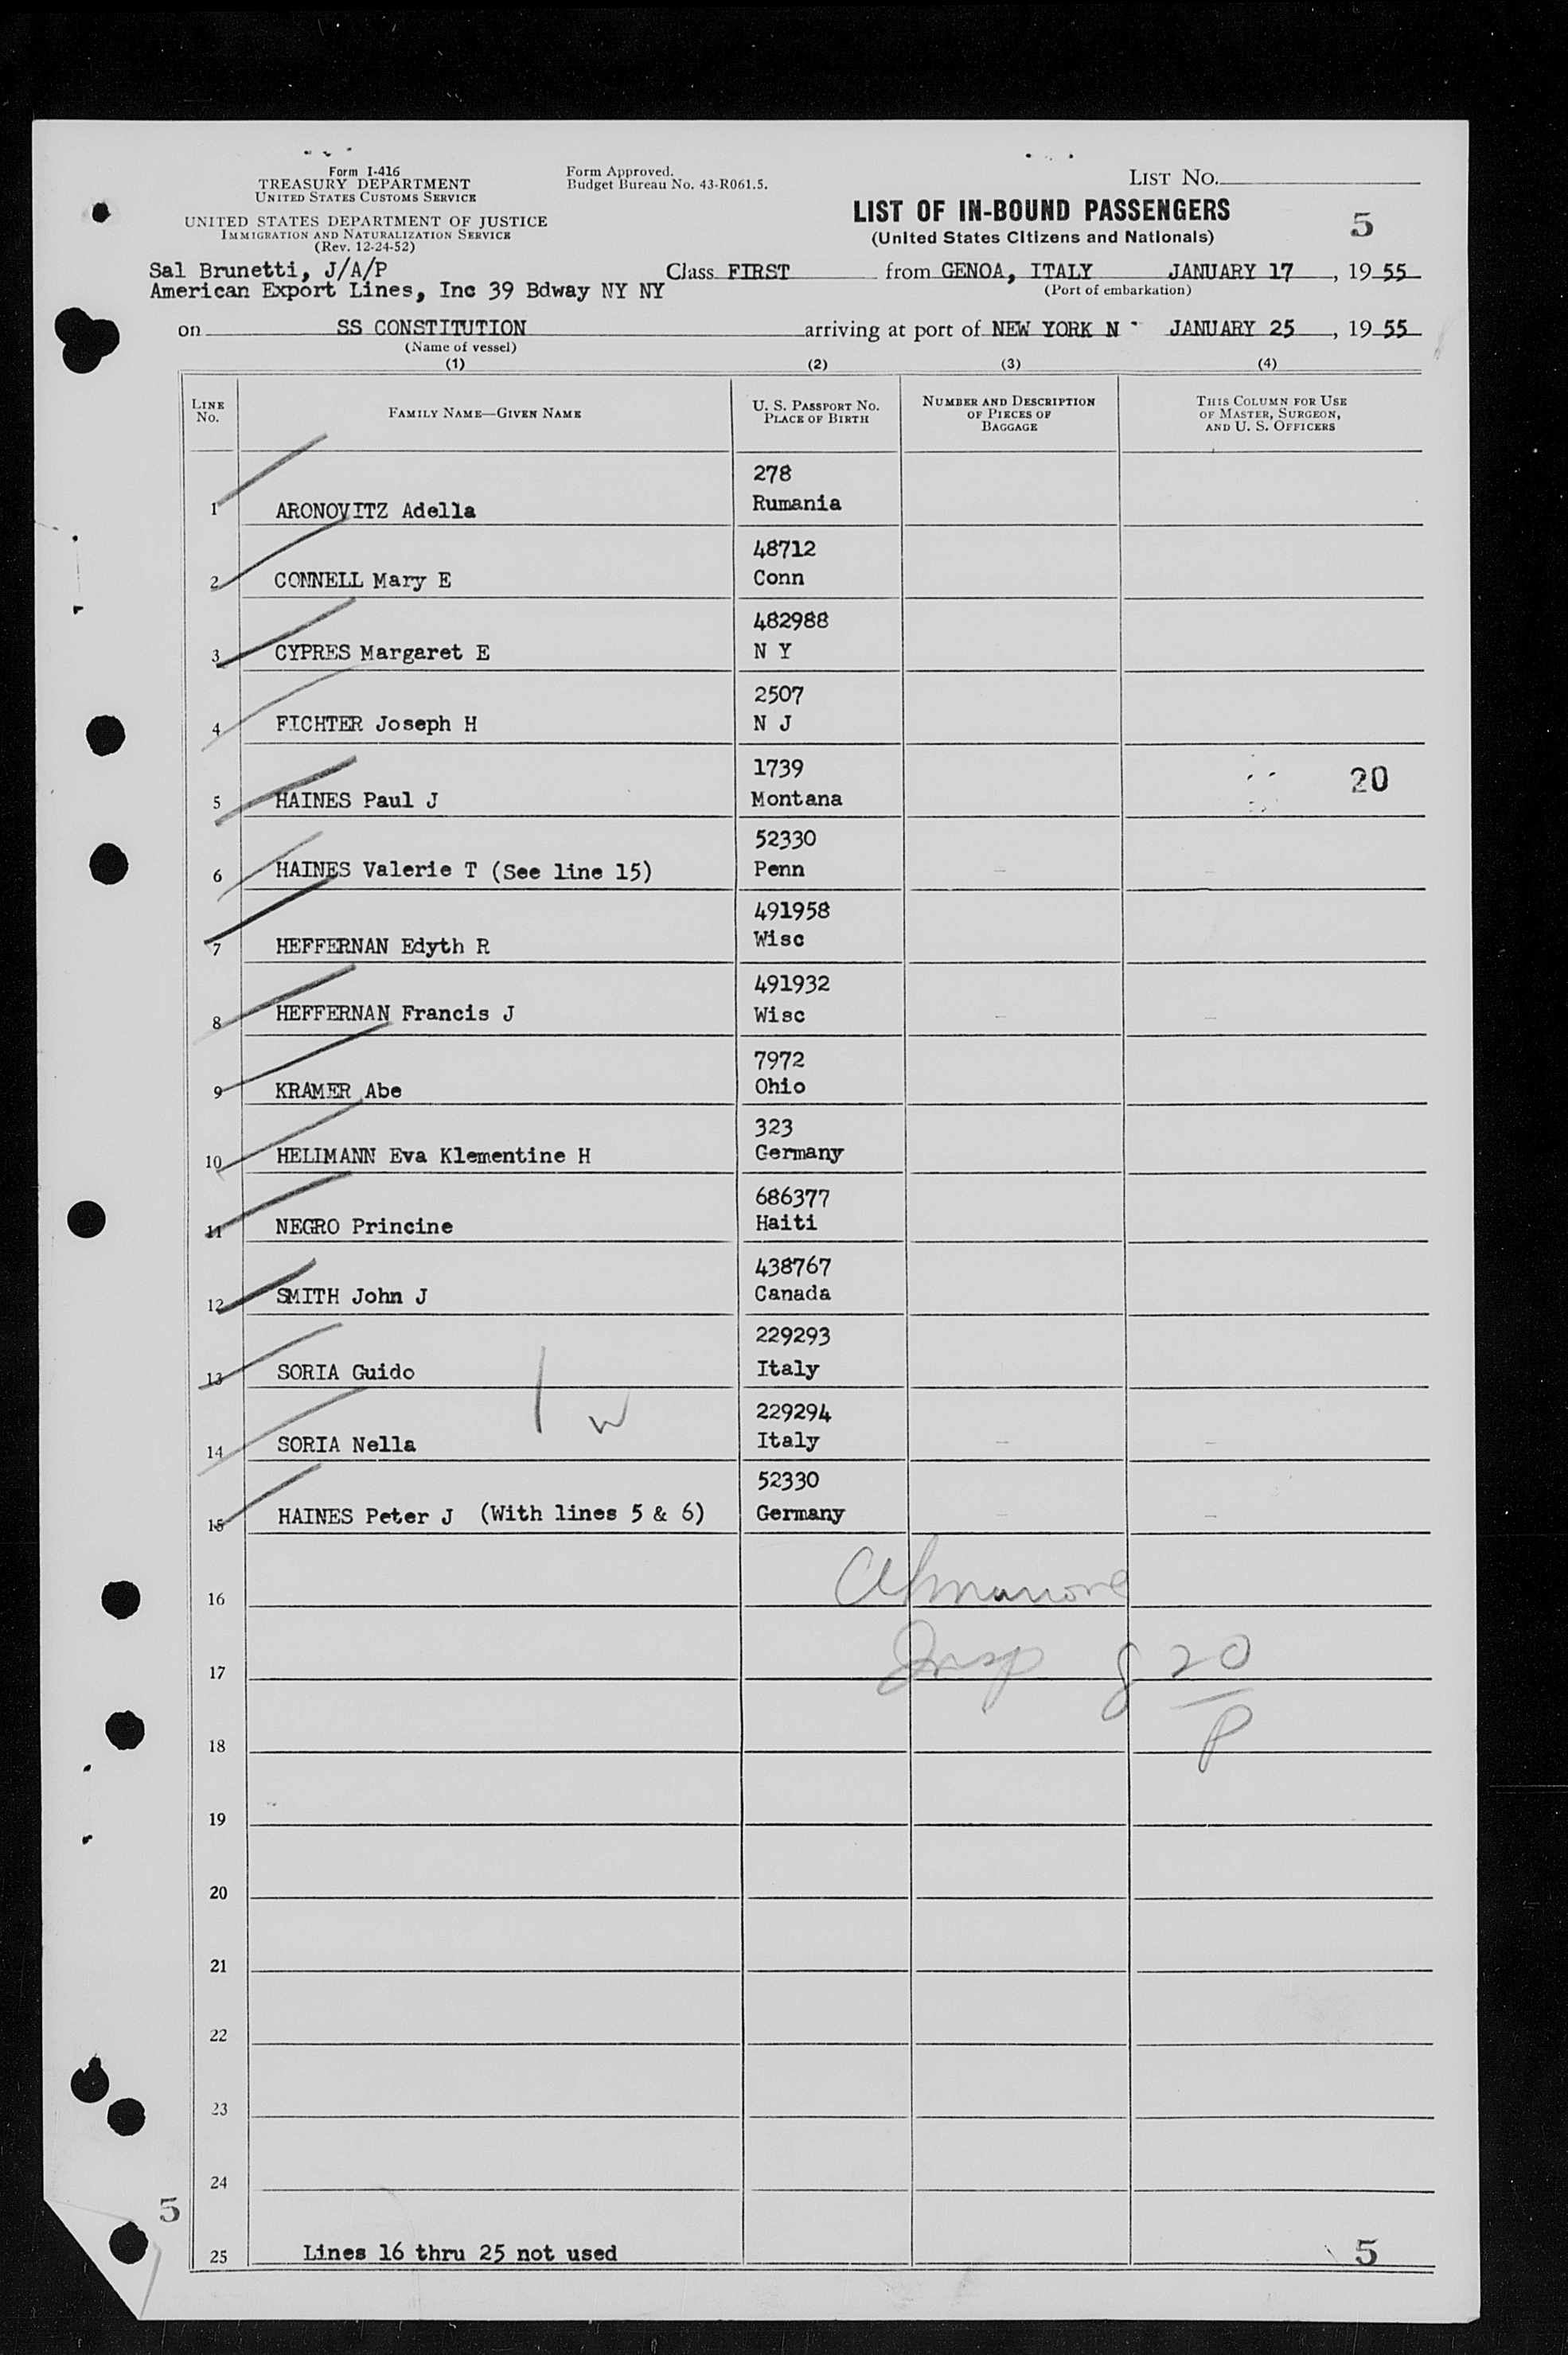 Form I-416
TREASURY DEPARTMENT
UNITED STATES CUSTOMS SERVICE
UNITED STATES DEPARTMENT OF JUSTICE
IMMIGRATION AND NATURALIZATION SERVICE
(Rev. 12-24-52)
Form Approved.
Budget Bureau No. 43-R061.5.
LIST NO.
LIST OF IN-BOUND PASSENGERS
(United States Citizens and Nationals)
5
Sal Brunetti, J/A/P
American Export Lines, Inc 39 Bdway NY NY
Class FIRST from GENOA, ITALY JANUARY 17, 19 55
(Port of embarkation)
on SS CONSTITUTION arriving at port of NEW YORK N JANUARY 25, 19 55
(Name of vessel)
(1) (2) (3) (4)
LINE NO.
FAMILY NAME—GIVEN NAME
U. S. PASSPORT NO.
PLACE OF BIRTH
NUMBER AND DESCRIPTION
OF PIECES OF
BAGGAGE
THIS COLUMN FOR USE
OF MASTER, SURGEON,
AND U. S. OFFICERS
278
1 ARONOVITZ Adella Rumania
48712
2 CONNELL Mary E Conn
482988
3 CYPRES Margaret E N Y
2507
4 FICHTER Joseph H N J
1739
20
5 HAINES Paul J Montana
52330
6 HAINES Valerie T (See line 15) Penn
491958
7 HEFFERNAN Edyth R Wisc
491932
8 HEFFERNAN Francis J Wisc
7972
9 KRAMER Abe Ohio
323
10 HELIMANN Eva Klementine H Germany
686377
11 NEGRO Princine Haiti
438767
12 SMITH John J Canada
229293
13 SORIA Guido Italy
229294
14 SORIA Nella Italy
52330
15 HAINES Peter J (With lines 5 & 6) Germany
16
Insp 20
17
P
18
19
20
21
22
23
24
5
25 Lines 16 thru 25 not used 5